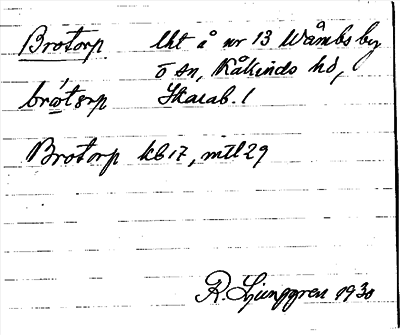 Brotorp lht å nr 13 Wåmbs by
ö sn, Kåkinds hd,
brótorp Skarab. l
Brotorp kb 17, mtl 29
R. Ljunggren 1930